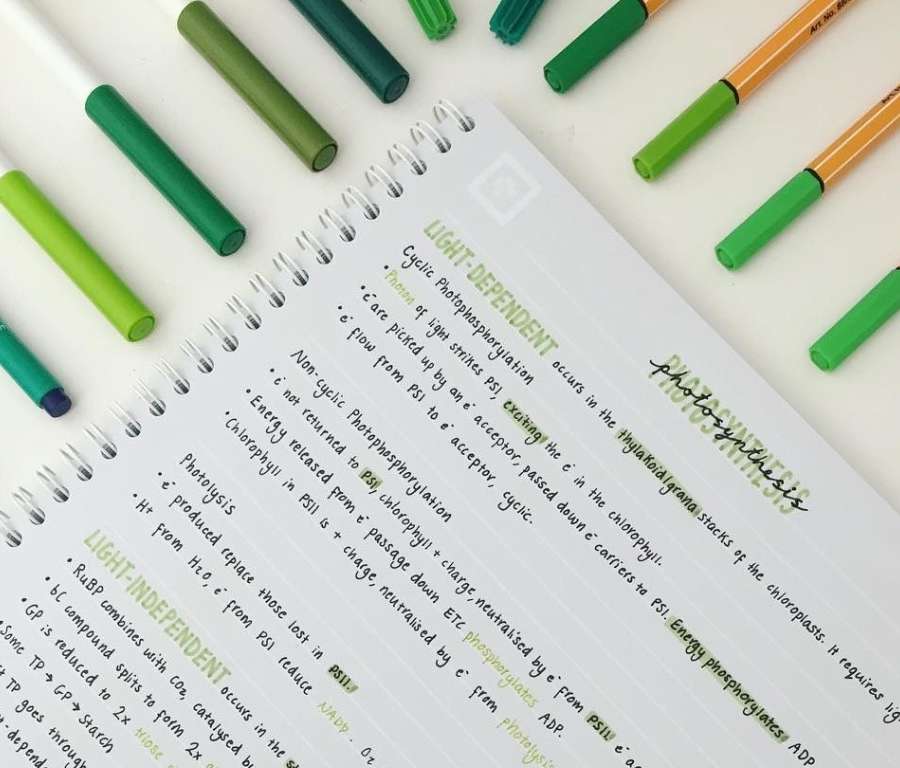 Art. No. 88
PHOTOSYNTHESIS
photosynthesis
LIGHT-DEPENDENT occurs in the thylakoid/grana stacks of the chloroplasts. It requires lig
Cyclic Photophosphorylation
• Photon of light strikes PSI, exciting the e⁻ in the chlorophyll.
• e⁻ are picked up by an e⁻ acceptor, passed down e⁻ carriers to PSI. Energy phosphorylates ADP
• e⁻ flow from PSI to e⁻ acceptor, cyclic.
Non-cyclic Photophosphorylation
• e⁻ not returned to PSI, chlorophyll + charge, neutralised by e⁻ from PSII. e⁻
• Energy released from e⁻ passage down ETC phosphorylates ADP.
• Chlorophyll in PSII is + charge, neutralised by e⁻ from photolysis
Photolysis
• e⁻ produced replace those lost in PSII.
• H+ from H₂O, e⁻ from PSI reduce NADP. O₂
LIGHT-INDEPENDENT occurs in the
• RuBP combines with CO₂, catalysed by
• 6C compound splits to form 2x
• GP is reduced to 2x triose
• Some TP → GP → Starch
TP goes through